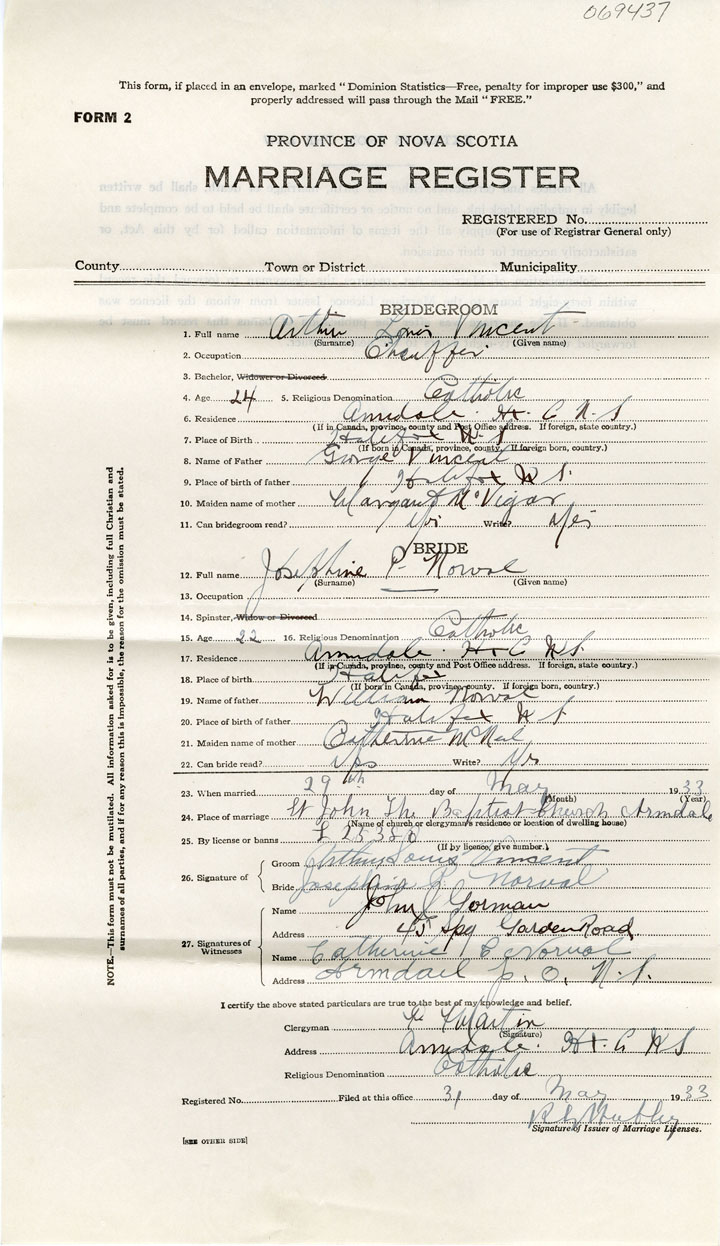 069437
This form, if placed in an envelope, marked "Dominion Statistics—Free, penalty for improper use $300," and
properly addressed will pass through the Mail "FREE."
FORM 2
PROVINCE OF NOVA SCOTIA
MARRIAGE REGISTER
REGISTERED No.
(For use of Registrar General only)
County Town or District Municipality
BRIDEGROOM
1. Full name Arthur Louis Vincent
(Surname) (Given name)
2. Occupation Chauffer
3. Bachelor, Widower or Divorced
4. Age 24 5. Religious Denomination Catholic
6. Residence Armdale. Hx. C N.S
(If in Canada, province, county and Post Office address. If foreign, state country.)
7. Place of Birth Halifax N.S
(If born in Canada, province, county. If foreign born, country.)
8. Name of Father George Vincent
9. Place of birth of father Halifax N.S.
10. Maiden name of mother Margaret McVigar
11. Can bridegroom read? Yes Write? Yes
BRIDE
12. Full name Josephine P. Norval
(Surname) (Given name)
13. Occupation
14. Spinster, Widow or Divorced
15. Age 22 16. Religious Denomination Catholic
17. Residence Armdale. Hx C N.S.
(If in Canada, province, county and Post Office address. If foreign, state country.)
18. Place of birth Halifax
(If born in Canada, province, county. If foreign born, country.)
19. Name of father William Norval
20. Place of birth of father Halifax N S
21. Maiden name of mother Catherine McNeil
22. Can bride read? Yes Write? Yes
23. When married 29th day of May 1933
(Month) (Year)
24. Place of marriage St John The Baptist Church Armdale
(Name of church or clergyman's residence or location of dwelling house)
25. By license or banns
(If by licence, give number.)
26. Signature of
Groom Arthur Louis Vincent
Bride Josephine P. Norval
27. Signatures of Witnesses
Name John J Gorman
Address 45 Spg Garden Road
Name Catherine E Norval
Address Armdail P. O. N.S.
I certify the above stated particulars are true to the best of my knowledge and belief.
Clergyman Martin
(Signature)
Address Armdale. Hx. C N S
Religious Denomination Catholic
Registered No. Filed at this office 31 day of May 1933
Signature of Issuer of Marriage Licenses.
[SEE OTHER SIDE]
NOTE.—This form must not be mutilated. All information asked for is to be given, including full Christian and
surnames of all parties, and if for any reason this is impossible, the reason for the omission must be stated.